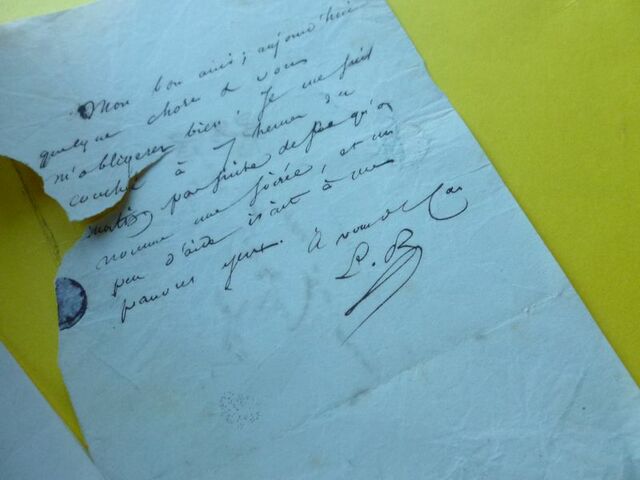 Mon bon ami, aujourd'hui
quelque chose de vous
m'obligerer bien. Je me suis
couché à 7 heures du
matin, par suite de ce qu'on
nomme une soirée, et un
peu d'aide irait à mes
pauvres yeux. À vous de
L. B.